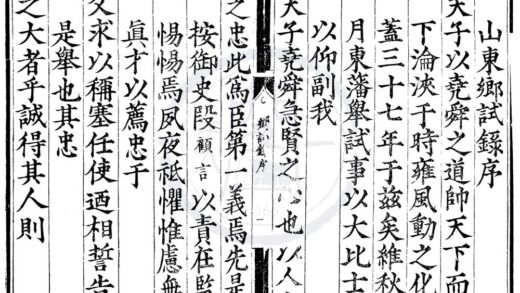 山東鄉試錄序
天子以堯舜之道帥天下而
下淪浹于時雍風動之化
蓋三十七年于兹矣維秋
月東藩舉試事以大比士
以仰副我
天子堯舜急賢之心也以人
鄉試錄序
之忠此爲臣第一義焉先是
按御史段顧言以責在監
惕惕焉夙夜祗懼惟慮無
眞才以薦忠于
父求以稱塞任使迺相誓告
是舉也其忠
之大者乎誠得其人則